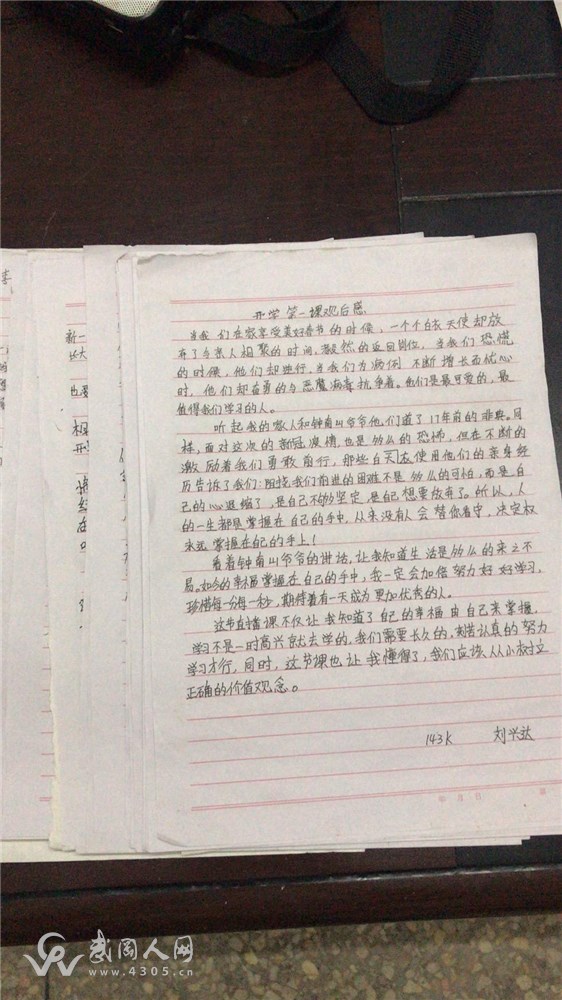 开学第一课观后感
当我们在家享受美好春节的时候，一个个白衣天使却放
弃了与亲人相聚的时间，毅然的返回岗位，当我们恐慌
的时候，他们却逆行，当我们为病例不断增长而忧心
时，他们却奋勇的与恶魔病毒抗争着。他们是最可爱的，最
值得我们学习的人。
听起我的家人和钟南山爷爷他们道了17年前的非典。同
样，面对这次的新冠疫情也是多么的恐怖，但在不断的
激励着我们勇敢前行，那些白天使用他们的亲身经
历告诉了我们：阻挠我们前进的困难不是多么的可怕，而是自
己的心退缩了，是自己不够坚定，是自己想要放弃了。所以，人
的一生都是掌握在自己的手中，从来没有人会替你看守，决定权
永远掌握在自己的手上！
看着钟南山爷爷的讲话，让我知道生活是多么的来之不
易。如今的幸福掌握在自己的手中，我一定会加倍努力好好学习，
珍惜每一分每一秒，期待着有一天成为更加优秀的人。
这节直播课不仅让我知道了自己的幸福由自己来掌握，
学习不是一时高兴就去学的，我们需要长久的，刻苦认真的努力
学习才行，同时，这节课也让我懂得了，我们应该从小树立
正确的价值观念。
143K 刘兴达
年 月 日
武冈人网
www.4305.cn